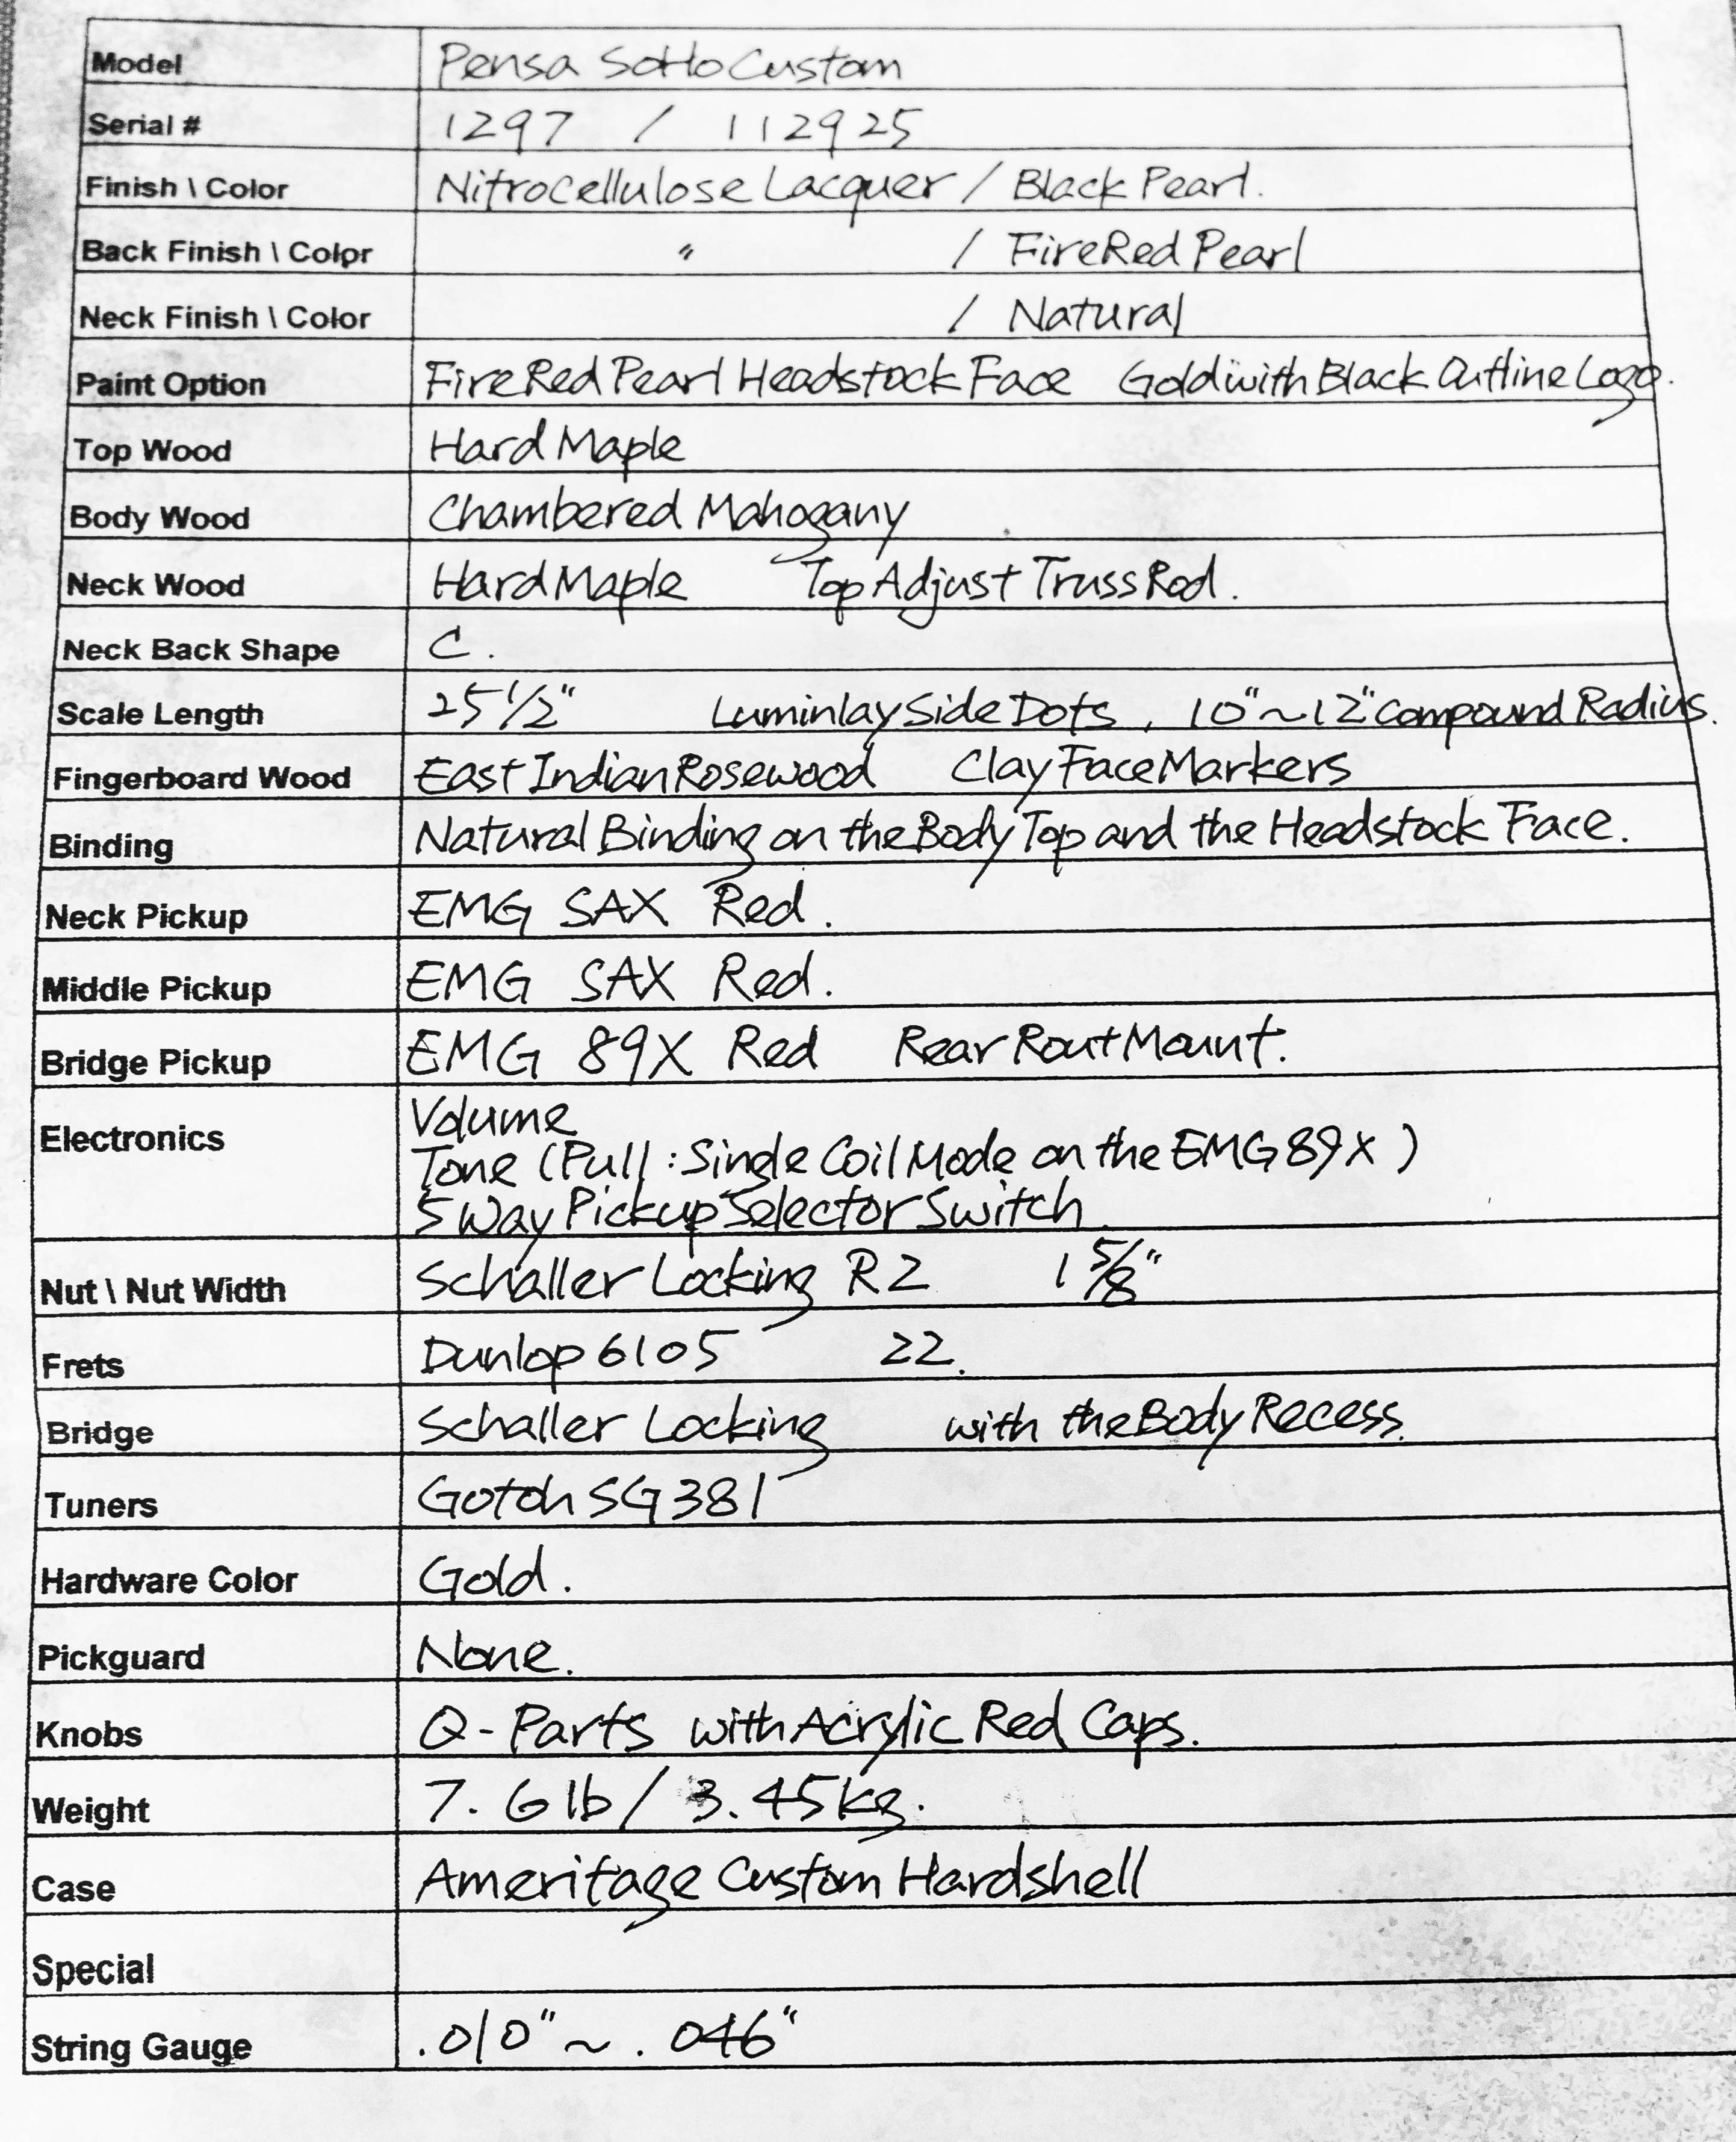 Model Pensa SoHo Custom
Serial # 1297 / 112925
Finish \ Color Nitrocellulose Lacquer / Black Pearl.
Back Finish \ Color " / Fire Red Pearl
Neck Finish \ Color / Natural
Paint Option Fire Red Pearl Headstock Face Gold with Black Outline Logo.
Top Wood Hard Maple
Body Wood Chambered Mahogany
Neck Wood Hard Maple Top Adjust Truss Rod.
Neck Back Shape C.
Scale Length 25 1/2" Luminlay Side Dots, 10"~12" Compound Radius.
Fingerboard Wood East Indian Rosewood Clay Face Markers
Binding Natural Binding on the Body Top and the Headstock Face.
Neck Pickup EMG SAX Red.
Middle Pickup EMG SAX Red.
Bridge Pickup EMG 89X Red Rear Rout Mount.
Electronics Volume
Tone (Pull : Single Coil Mode on the EMG 89X)
5 Way Pickup Selector Switch.
Nut \ Nut Width Schaller Locking R2 1 5/8"
Frets Dunlop 6105 22.
Bridge Schaller Locking with the Body Recess.
Tuners Gotoh SG381
Hardware Color Gold.
Pickguard None.
Knobs Q-Parts with Acrylic Red Caps.
Weight 7.6 lb / 3.45 kg.
Case Ameritage Custom Hardshell
Special
String Gauge .010" ~ .046"